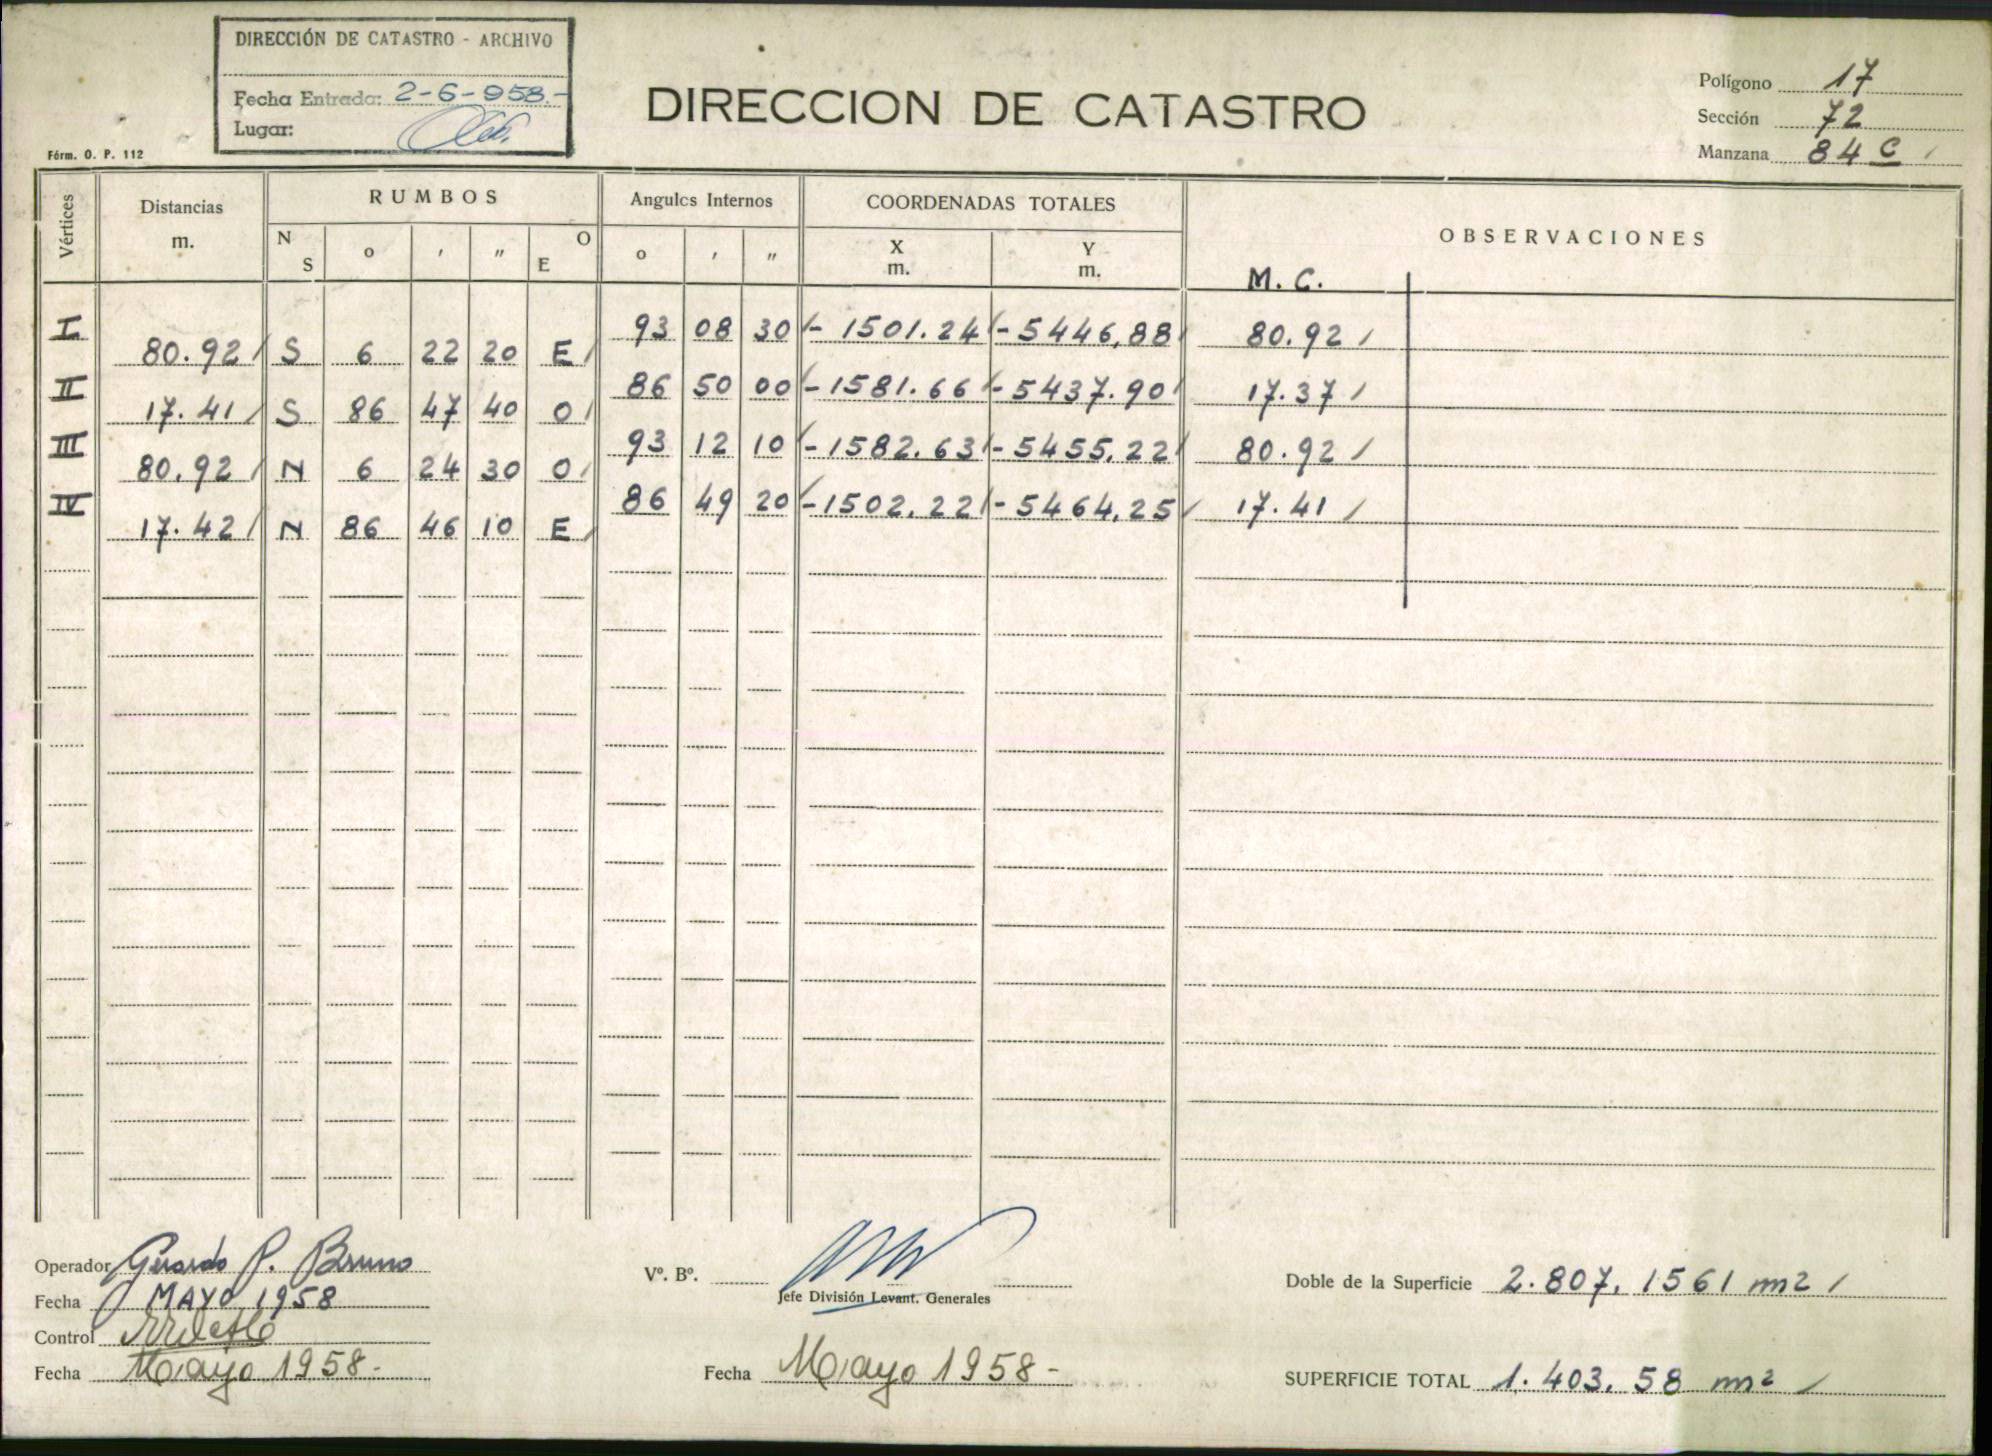 DIRECCIÓN DE CATASTRO - ARCHIVO
Fecha Entrada: 2-6-958.-
Lugar:
Fórm. O. P. 112
DIRECCION DE CATASTRO
Polígono 17
Sección 72
Manzana 84 C
Vértices Distancias m. RUMBOS Angulos Internos COORDENADAS TOTALES OBSERVACIONES
N S o ' " O E o ' " X m. Y m. M. C.
I 93 08 30 - 1501.24 - 5446,88 80.92
80.92 S 6 22 20 E
II 86 50 00 - 1581.66 - 5437.90 17.37
17.41 S 86 47 40 O
III 93 12 10 - 1582.63 - 5455.22 80.92
80.92 N 6 24 30 O
IV 86 49 20 - 1502.22 - 5464,25 17.41
17.42 N 86 46 10 E
Operador Gerardo P. Bruno
Fecha MAYO 1958
Control
Fecha Mayo 1958-
Vº. Bº.
Jefe División Levant. Generales
Fecha Mayo 1958-
Doble de la Superficie 2.807,1561 m2
SUPERFICIE TOTAL 1.403,58 m2